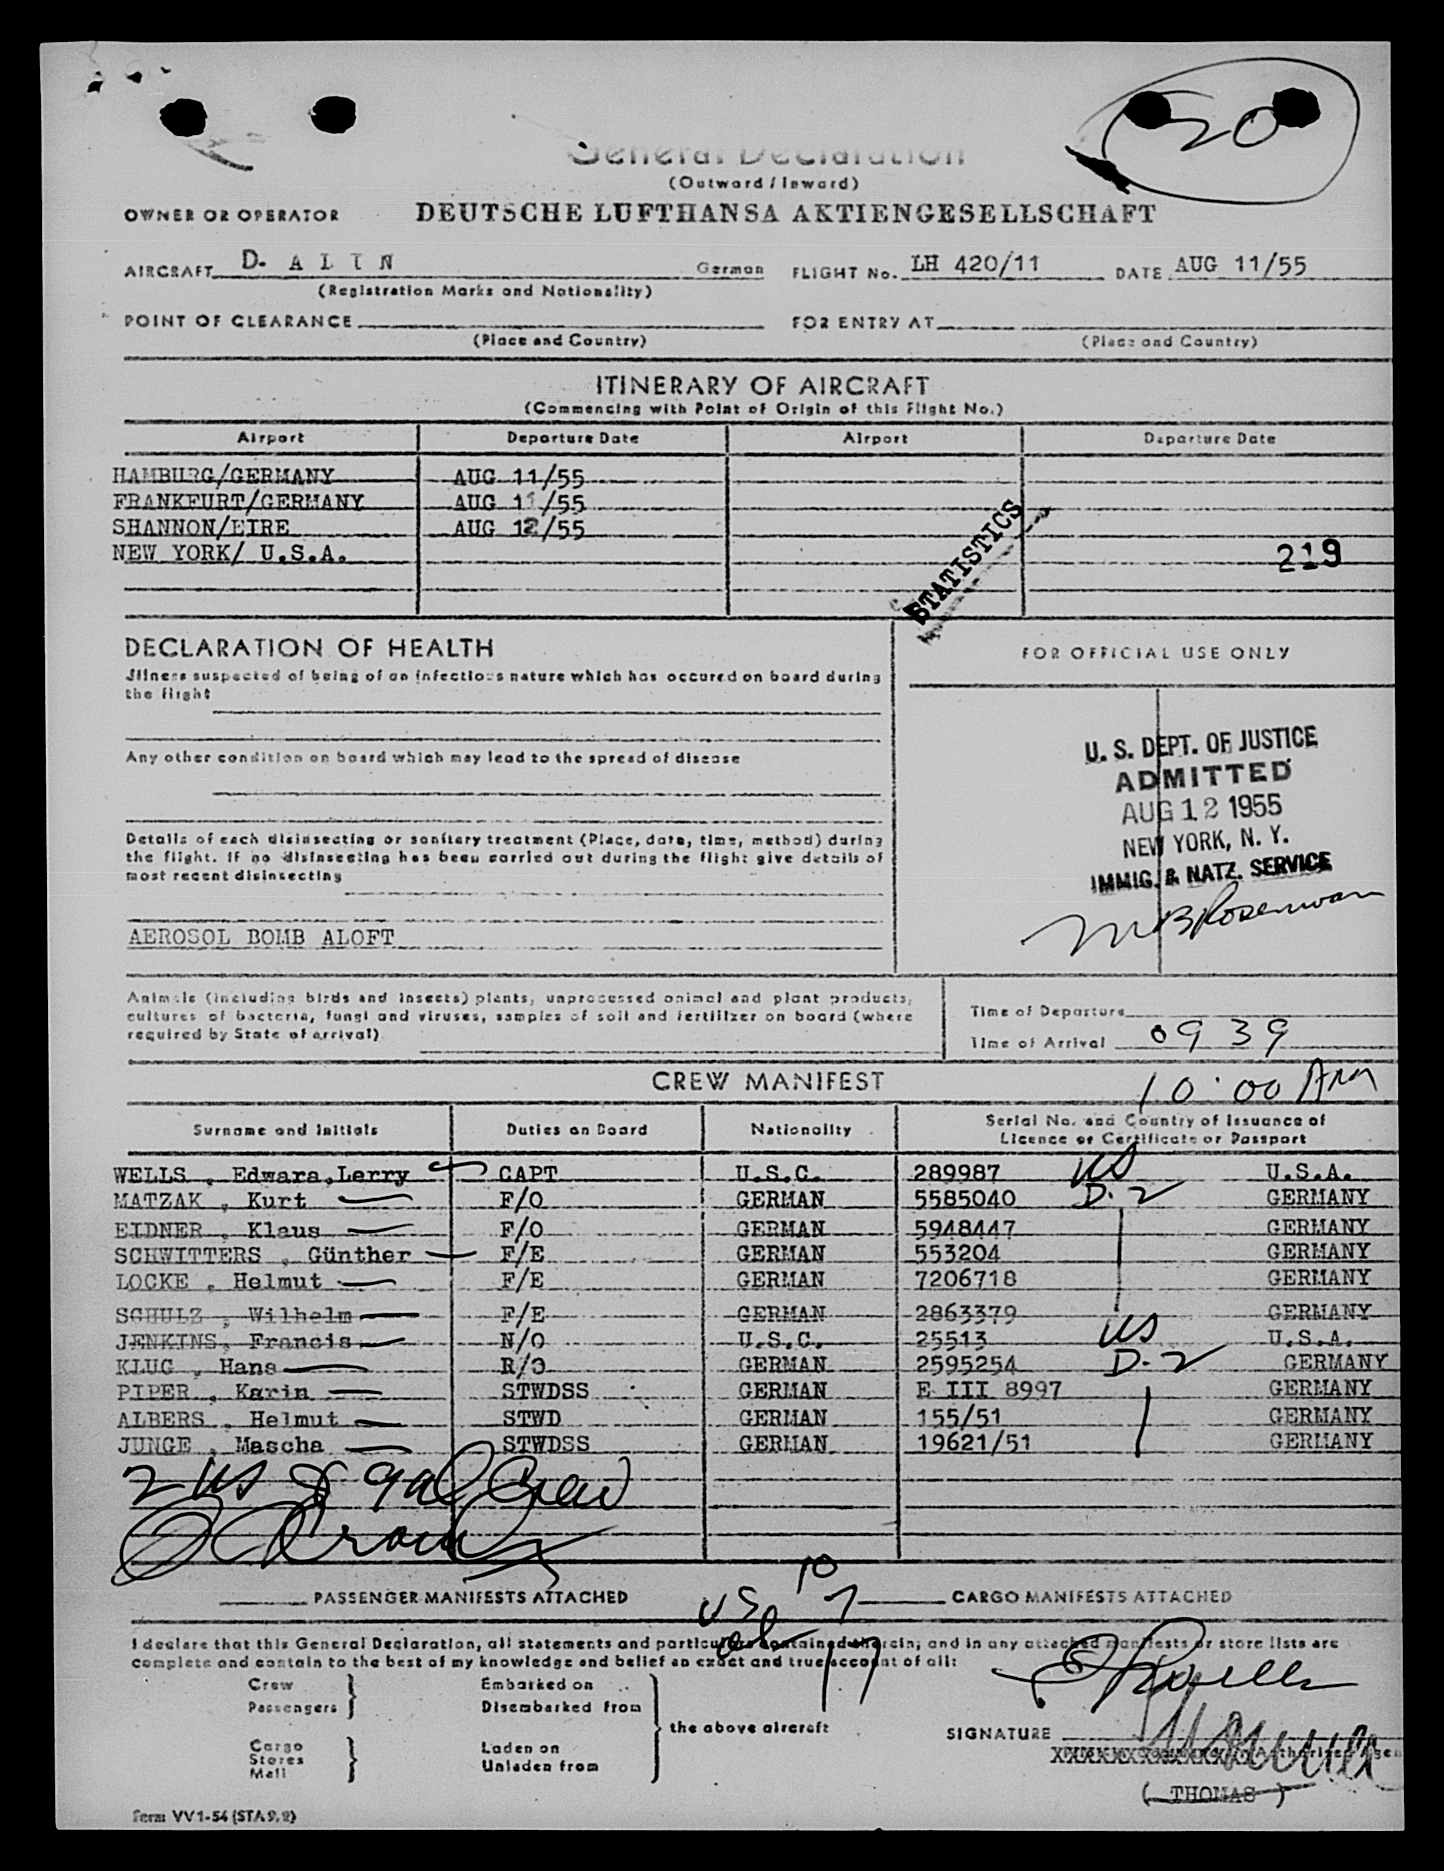 20
General Declaration
(Outward / Inward)
OWNER OR OPERATOR DEUTSCHE LUFTHANSA AKTIENGESELLSCHAFT
AIRCRAFT D- A L I N German FLIGHT No. LH 420/11 DATE AUG 11/55
(Registration Marks and Nationality)
POINT OF CLEARANCE FOR ENTRY AT
(Place and Country) (Place and Country)
ITINERARY OF AIRCRAFT
(Commencing with Point of Origin of this Flight No.)
Airport Departure Date Airport Departure Date
HAMBURG/GERMANY AUG 11/55
FRANKFURT/GERMANY AUG 11/55
SHANNON/EIRE AUG 12/55
NEW YORK/ U.S.A.
STATISTICS
219
DECLARATION OF HEALTH
Jllness suspected of being of an infectious nature which has occured on board during
the flight
Any other condition on board which may lead to the spread of disease
Details of each disinsecting or sanitary treatment (Place, date, time, method) during
the flight. If no disinsecting has been carried out during the flight give details of
most recent disinsecting
AEROSOL BOMB ALOFT
FOR OFFICIAL USE ONLY
U. S. DEPT. OF JUSTICE
ADMITTED
AUG 12 1955
NEW YORK, N. Y.
IMMIG. & NATZ. SERVICE
Animals (including birds and insects) plants, unprocessed animal and plant products,
cultures of bacteria, fungi and viruses, samples of soil and fertilizer on board (where
required by State of arrival)
Time of Departure
Time of Arrival 0939
10:00 Am
CREW MANIFEST
Surname and Initials Duties on Board Nationality Serial No. and Country of Issuance of
Licence or Certificate or Passport
WELLS , Edwara,Lerry CAPT U.S.C. 289987 US U.S.A.
MATZAK , Kurt F/O GERMAN 5585040 D-2 GERMANY
EIDNER , Klaus F/O GERMAN 5948447 GERMANY
SCHWITTERS , Günther F/E GERMAN 553204 GERMANY
LOCKE , Helmut F/E GERMAN 7206718 GERMANY
SCHULZ , Wilhelm F/E GERMAN 2863379 GERMANY
JENKINS, Francis N/O U.S.C. 25513 US U.S.A.
KLUG , Hans R/O GERMAN 2595254 D-2 GERMANY
PIPER , Karin STWDSS GERMAN E III 8997 GERMANY
ALBERS , Helmut STWD GERMAN 155/51 GERMANY
JUNGE , Mascha STWDSS GERMAN 19621/51 GERMANY
2 US & 9 al Crew
PASSENGER MANIFESTS ATTACHED US 10 7 CARGO MANIFESTS ATTACHED
I declare that this General Declaration, all statements and particulars contained therein, and in any attached manifests or store lists are
complete and contain to the best of my knowledge and belief an exact and true account of all:
al 17
Crew Embarked on
Passengers Disembarked from
the above aircraft
Cargo Laden on
Stores
Mail Unladen from
SIGNATURE
Authorized Agen
( THOMAS )
Form VV 1-54 (STA 9.2)